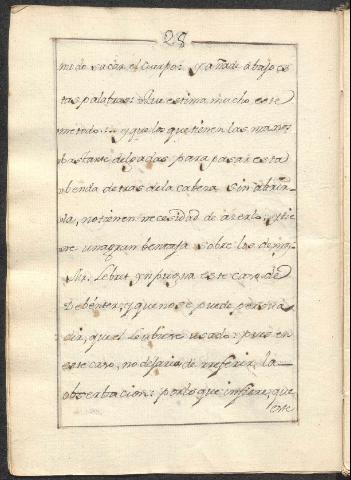 28
mo de sacar el cuerpo: y añade abajo es
tas palabras: Que estima mucho este
metodo: y que los que tienen las manos
bastante delgadas para pasar esta
benda detras de la cabeza sin abrir
la, no tienen necesidad de acerlo: y tie
ne una gran bentaja sobre los demas.
Mr. Lebret ynpugna este caso de
Debénter: y que no se puede persua
dir, que el lo ubiese usado: pues en
este caso, no dejaria de rreferir la
obserbacion: por lo que infiere, que
este